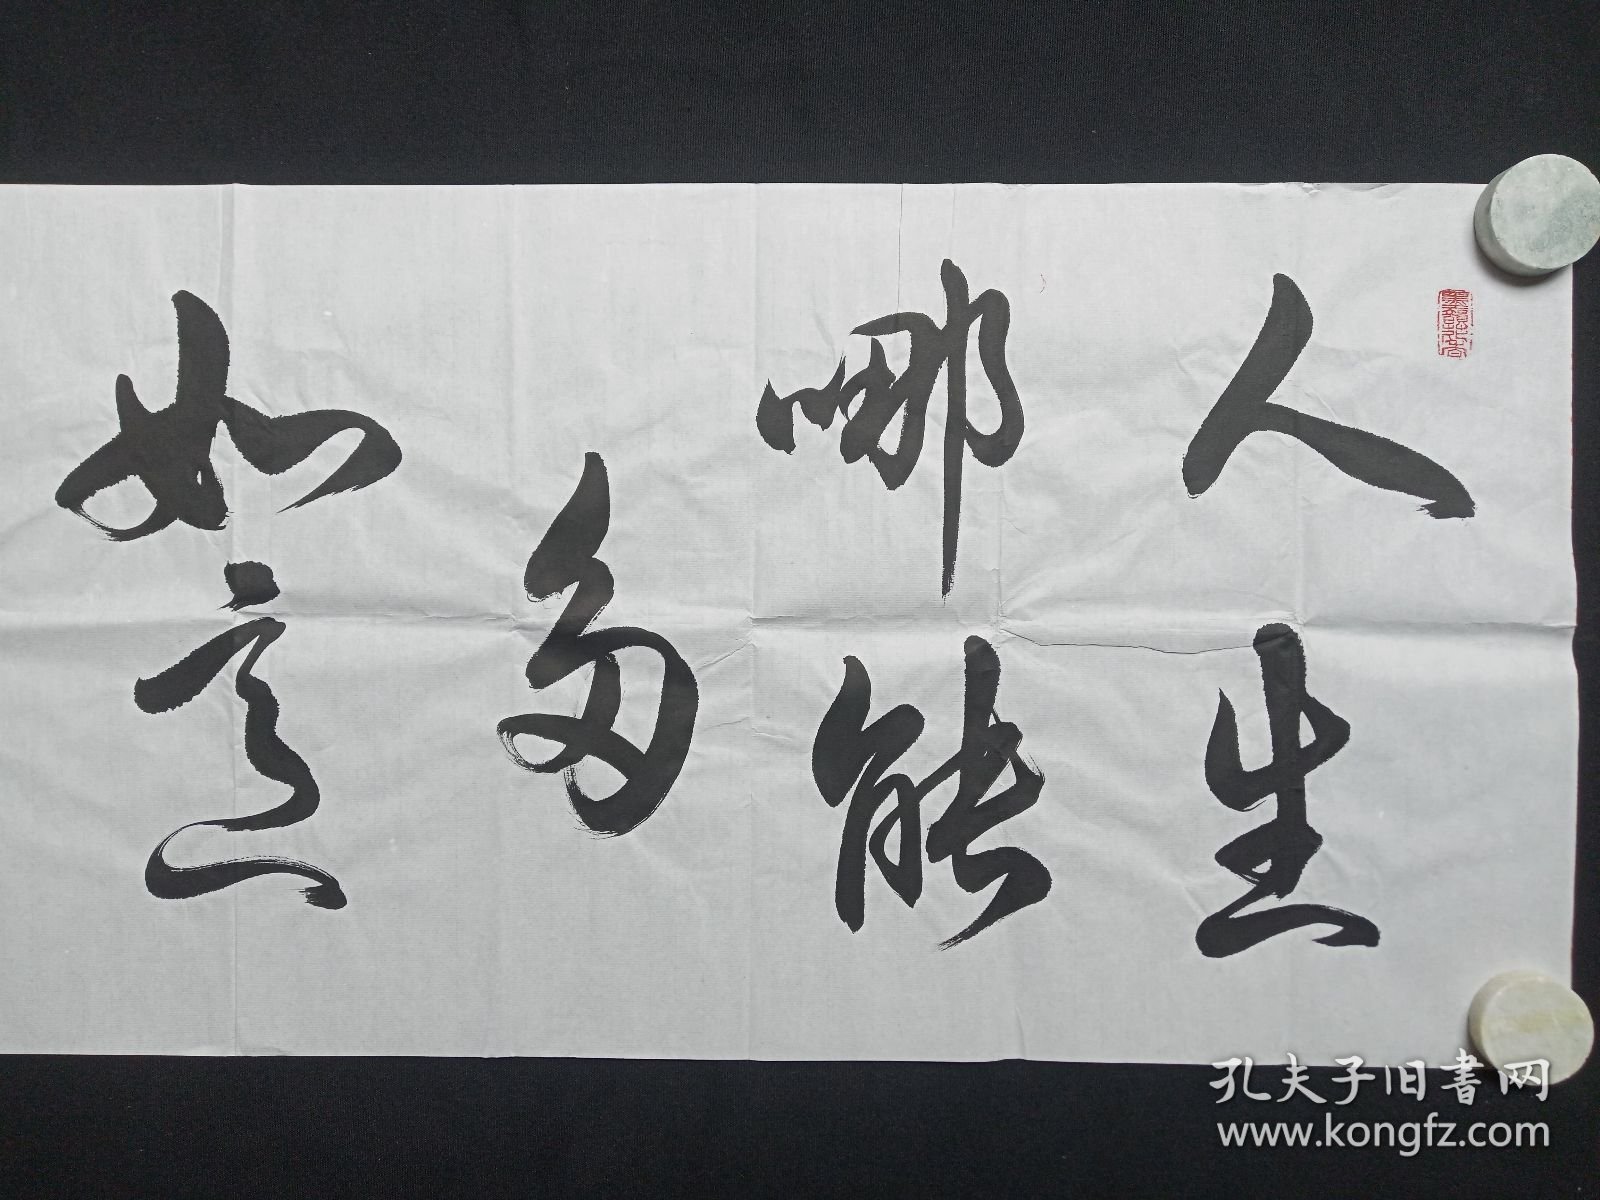 人生
哪能
多
如意
孔夫子旧书网
www.kongfz.com